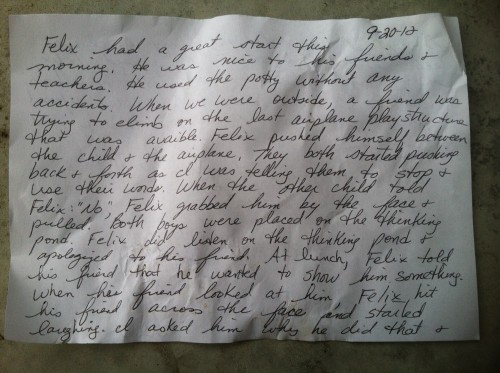 9-20-12
Felix had a great start this
morning. He was nice to his friends &
teachers. He used the potty without any
accidents. When we were outside, a friend was
trying to climb on the last airplane playstructure
that was avaible. Felix pushed himself between
the child & the airplane. They both started pushing
back & forth as I was telling them to stop &
use their words. When the other child told
Felix: "No", Felix grabbed him by the face &
pulled. Both boys were placed on the thinking
pond. Felix did listen on the thinking pond &
apologized to his friend. At lunch, Felix told
his friend that he wanted to show him something.
When his friend looked at him, Felix hit
his friend across the face and started
laughing. I asked him why he did that &